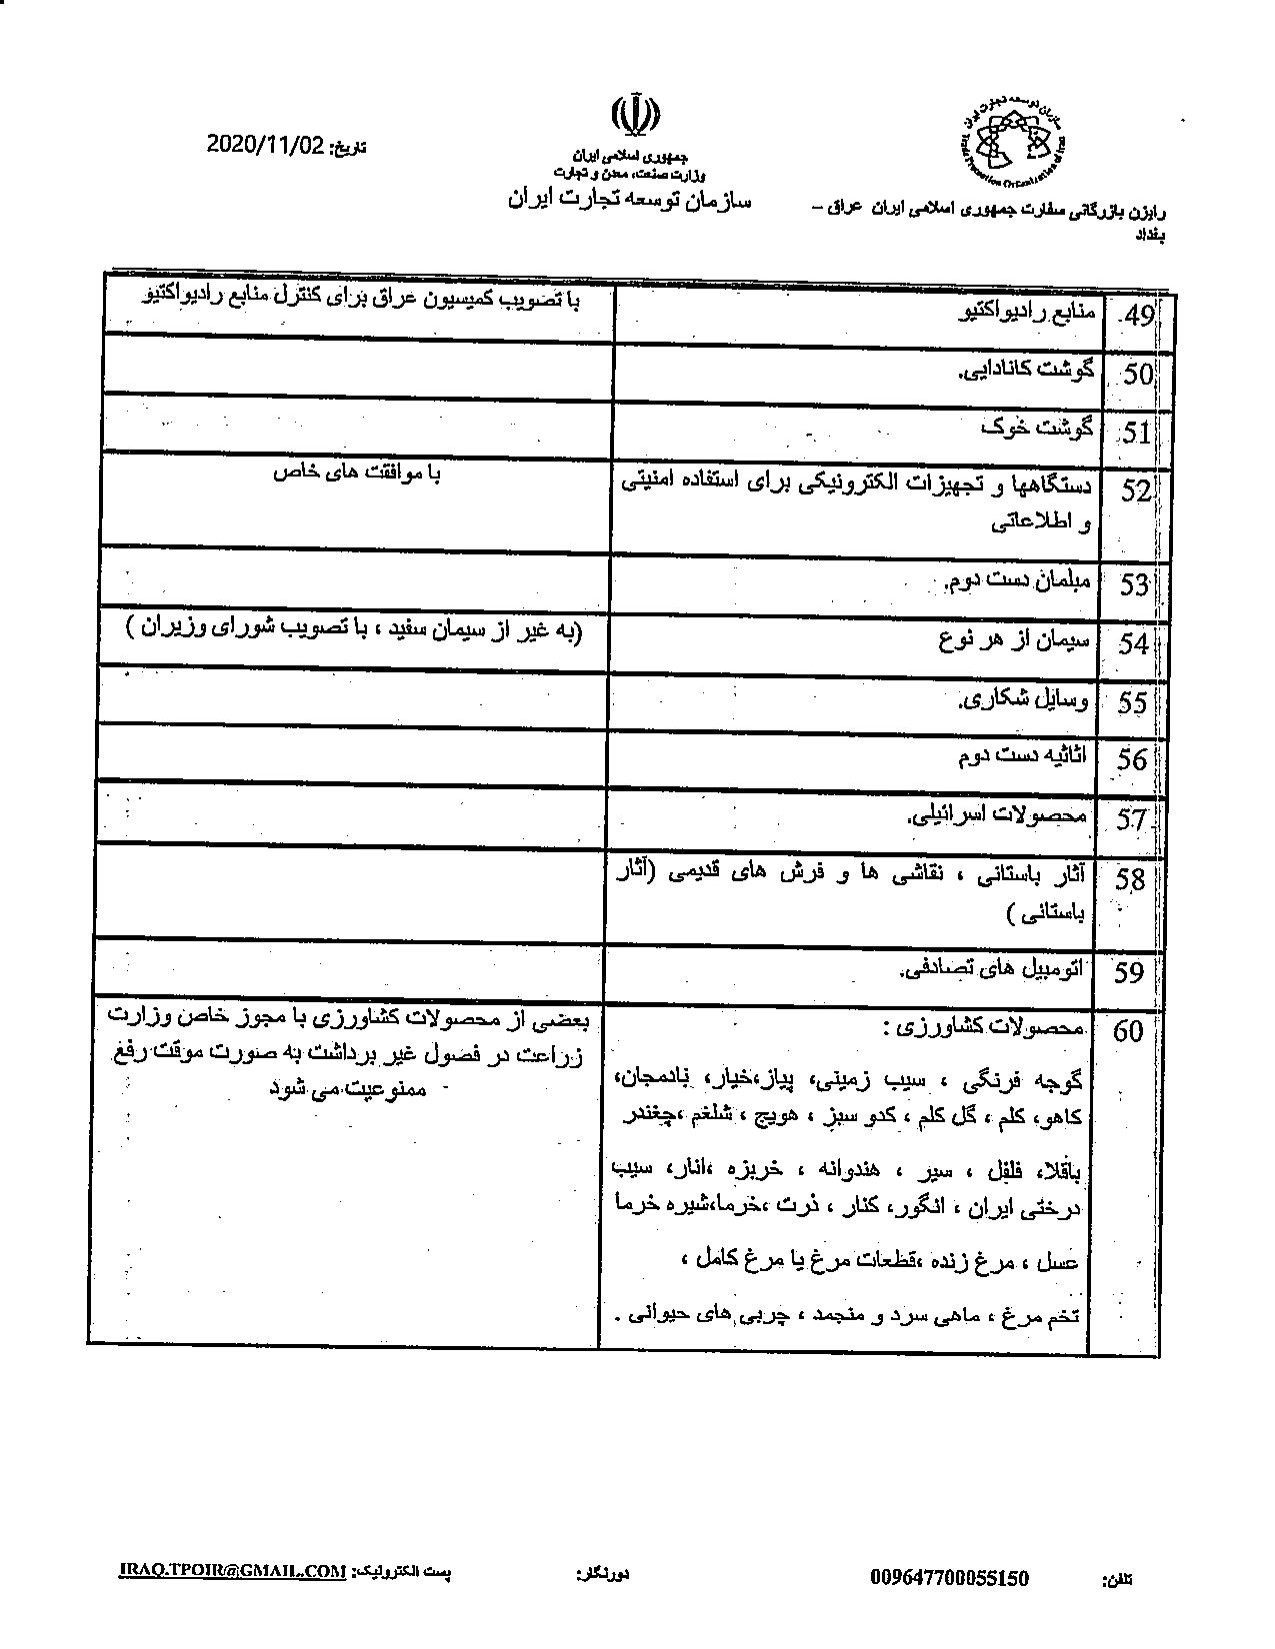 سازمان توسعه تجارت ایران
Trade Promotion Organization of Iran
رایزن بازرگانی سفارت جمهوری اسلامی ایران عراق –
بغداد
جمهوری اسلامی ایران
وزارت صنعت، معدن و تجارت
سازمان توسعه تجارت ایران
تاریخ: 2020/11/02
49. منابع رادیواکتیو با تصویب کمیسیون عراق برای کنترل منابع رادیواکتیو
50 گوشت کانادایی.
51 گوشت خوک
52 دستگاهها و تجهیزات الکترونیکی برای استفاده امنیتی با موافقت های خاص
و اطلاعاتی
53 مبلمان دست دوم.
54 سیمان از هر نوع (به غیر از سیمان سفید ، با تصویب شورای وزیران )
55 وسایل شکاری.
56 اثاثیه دست دوم
57 محصولات اسرائیلی.
58 آثار باستانی ، نقاشی ها و فرش های قدیمی (آثار
باستانی )
59 اتومبیل های تصادفی.
60 محصولات کشاورزی :
گوجه فرنگی ، سیب زمینی، پیاز،خیار، بادمجان،
کاهو، کلم ، گل کلم ، کدو سبز ، هویج ، شلغم ،چغندر
باقلا، فلفل ، سیر ، هندوانه ، خربزه ،انار، سیب
درختی ایران ، انگور، کنار ، ذرت ،خرما،شیره خرما
عسل ، مرغ زنده ،قطعات مرغ یا مرغ کامل ،
تخم مرغ ، ماهی سرد و منجمد ، چربی های حیوانی .
بعضی از محصولات کشاورزی با مجوز خاص وزارت
زراعت در فصول غیر برداشت به صورت موقت رفع
ممنوعیت می شود
تلفن: 009647700055150
دورنگار:
پست الکترونیک: IRAQ.TPOIR@GMAIL.COM